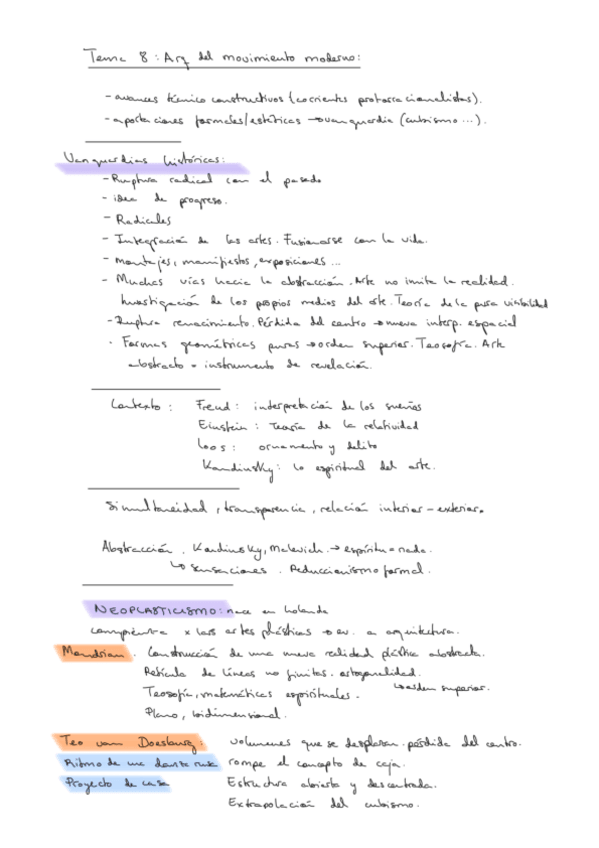 Tema 8: Arq del movimiento moderno:
- avances técnico constructivos (corrientes protorracionalistas).
- aportaciones formales/estéticas → vanguardia (cubismo ...).
Vanguardias históricas:
- Ruptura radical con el pasado
- idea de progreso.
- Radicales
- Integración de las artes. Fusionarse con la vida.
- montajes, manifiestos, exposiciones ...
- Muchas vías hacia la abstracción. Arte no imita la realidad.
Investigación de los propios medios del arte. Teoría de la pura visibilidad
- Ruptura renacimiento. Pérdida del centro → nueva interp. espacial
· Formas geométricas puras → orden superior. Teosofía. Arte
abstracto = instrumento de revelación.
Contexto: Freud: interpretación de los sueños
Einstein: Teoría de la relatividad
Loos: ornamento y delito
Kandinsky: lo espiritual del arte.
Simultaneidad, transparencia, relación interior-exterior.
Abstracción. Kandinsky, Malevich. → espíritu = nada.
↳ sensaciones. Reduccionismo formal.
NEOPLASTICISMO: nace en holanda
comprensiva x las artes plásticas → ev. a arquitectura.
Mondrian. Construcción de una nueva realidad plástica abstracta.
Retícula de líneas no finitas. ortogonalidad.
Teosofía, matemáticas espirituales. ↳ orden superior.
Plano, bidimensional.
Teo van Doesburg: volumenes que se desplazan. pérdida del centro.
Ritmo de una danza rusa rompe el concepto de caja.
Proyecto de casa Estructura abierta y descentrada.
Extrapolación del cubismo.